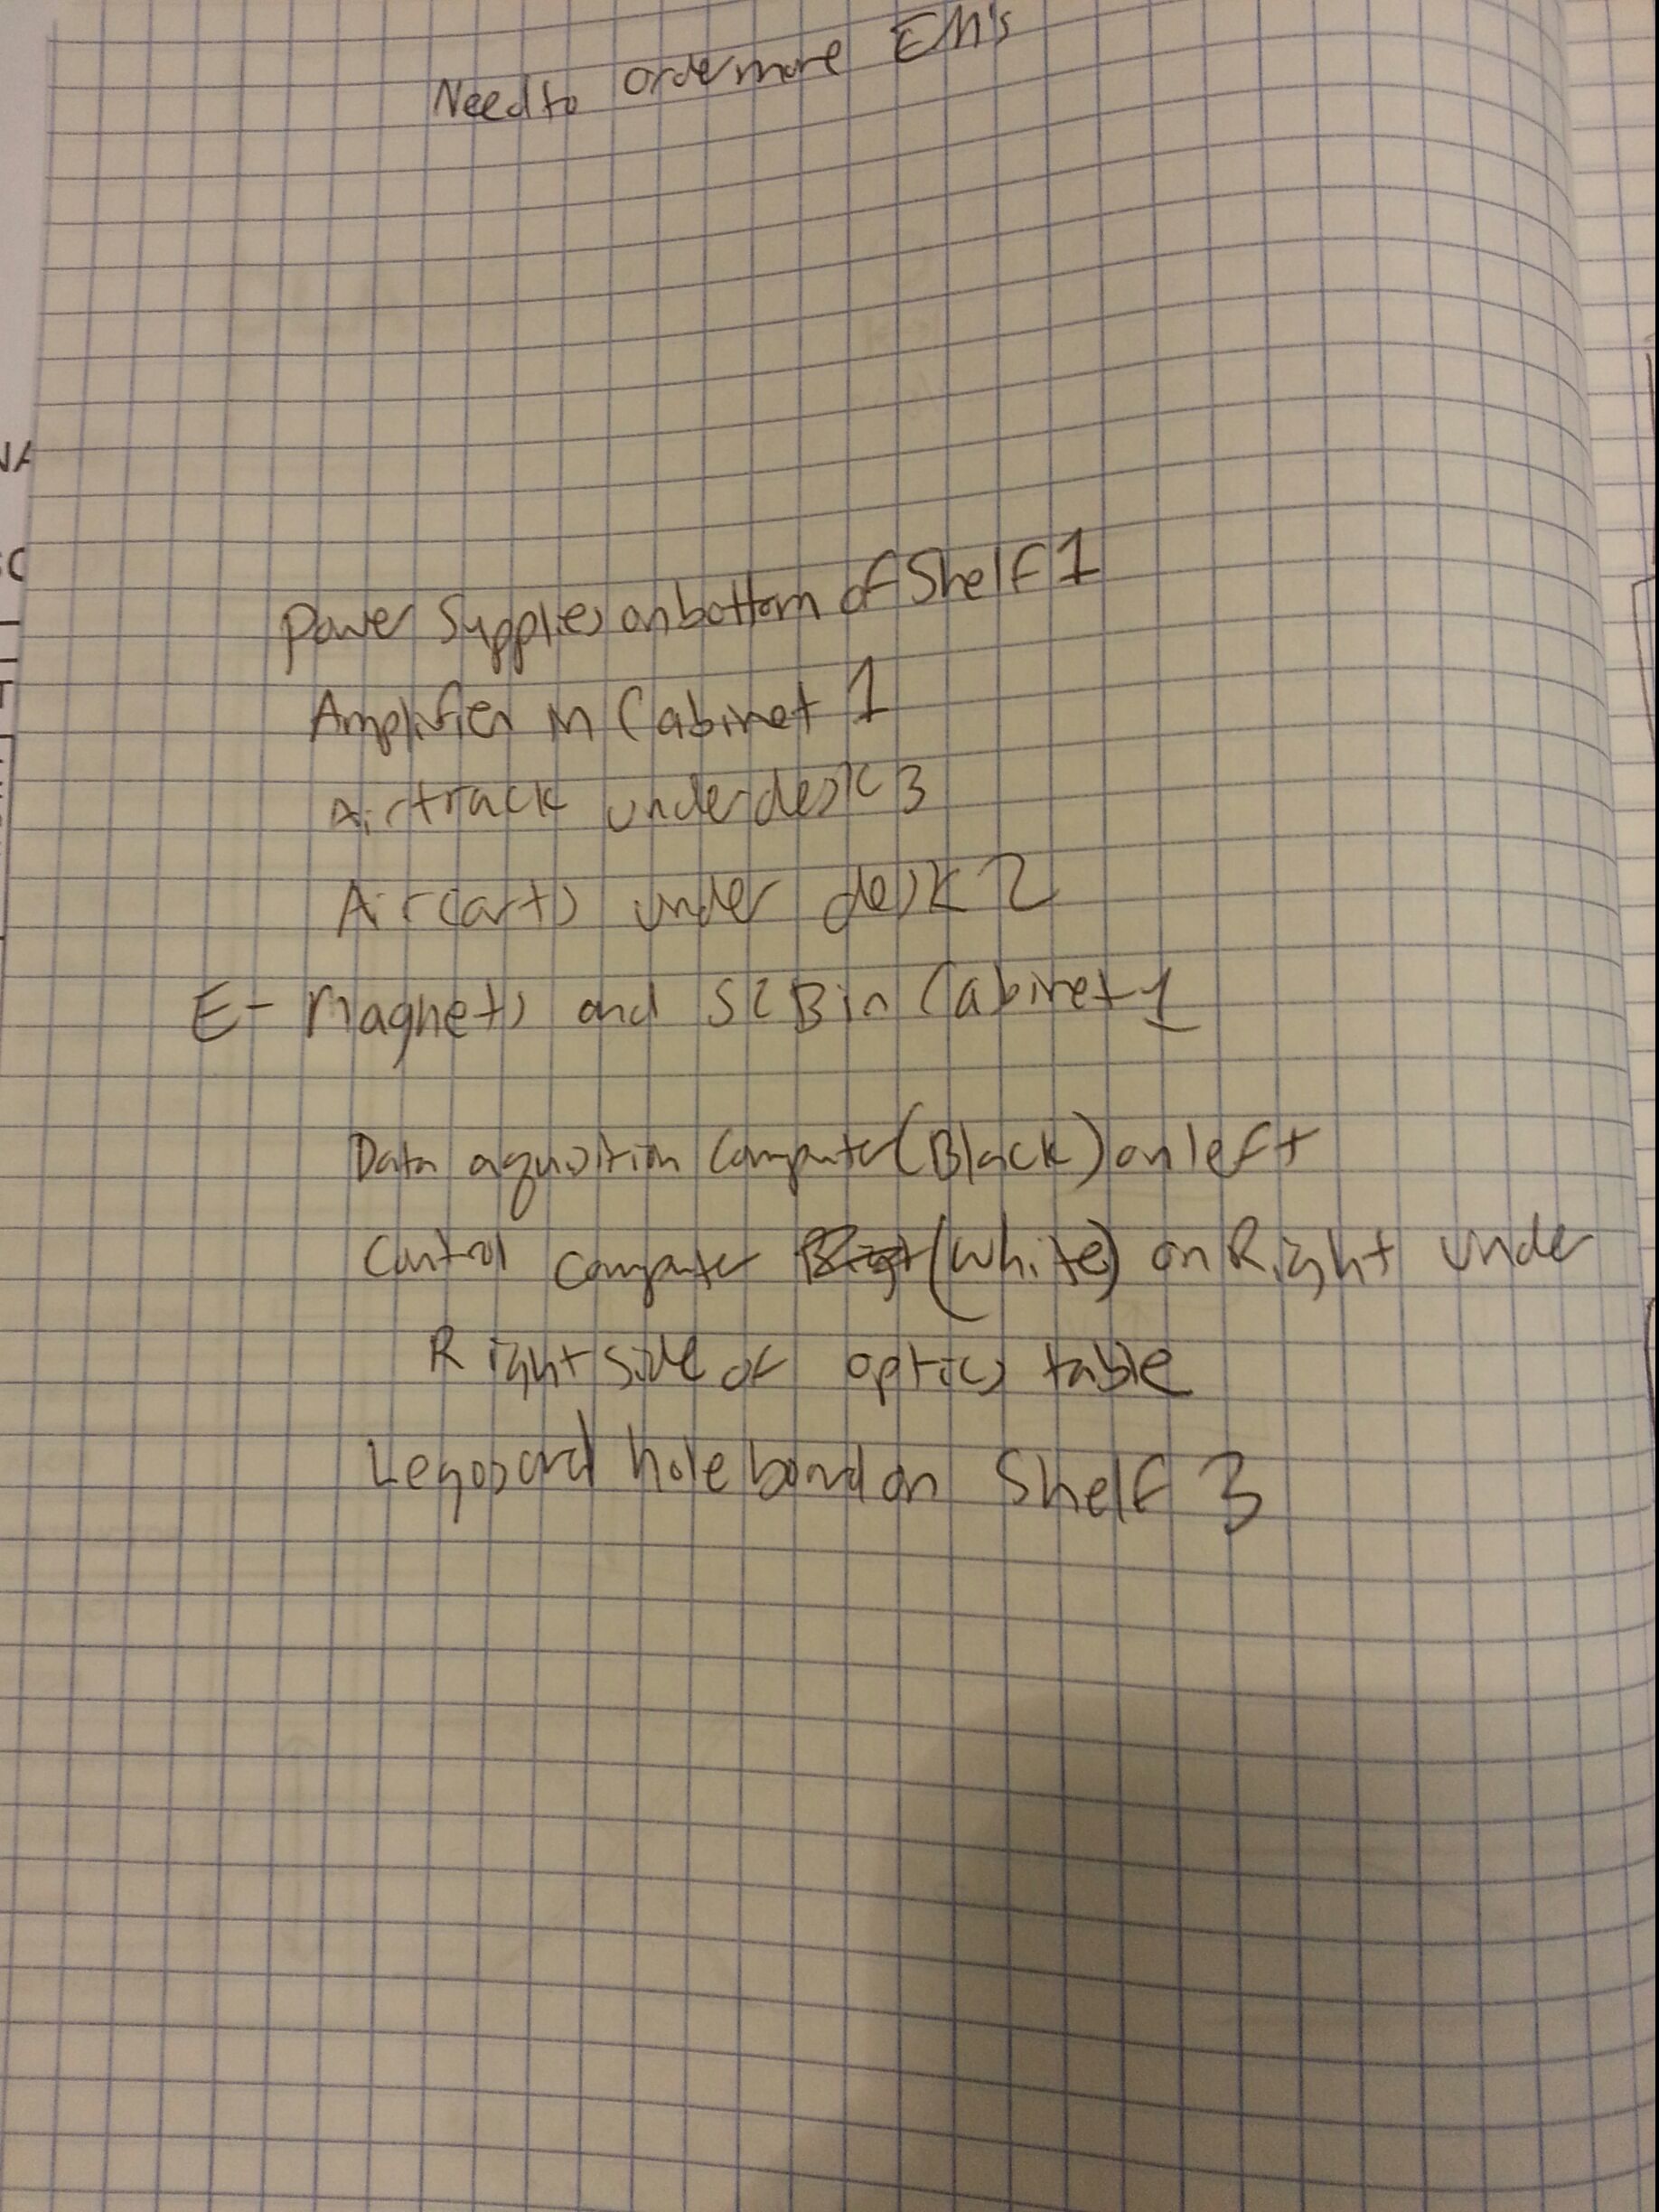 Need to order more EM's
Power Supplies on bottom of Shelf 1
Amplifier in Cabinet 1
Airtrack under desk 3
Aircarts under desk 2
E-Magnets and SCB in Cabinet 1
Data aquisition Computer (Black) on left
Control Computer (White) on Right under
Right side of optics table
Legos and hole board on Shelf 3